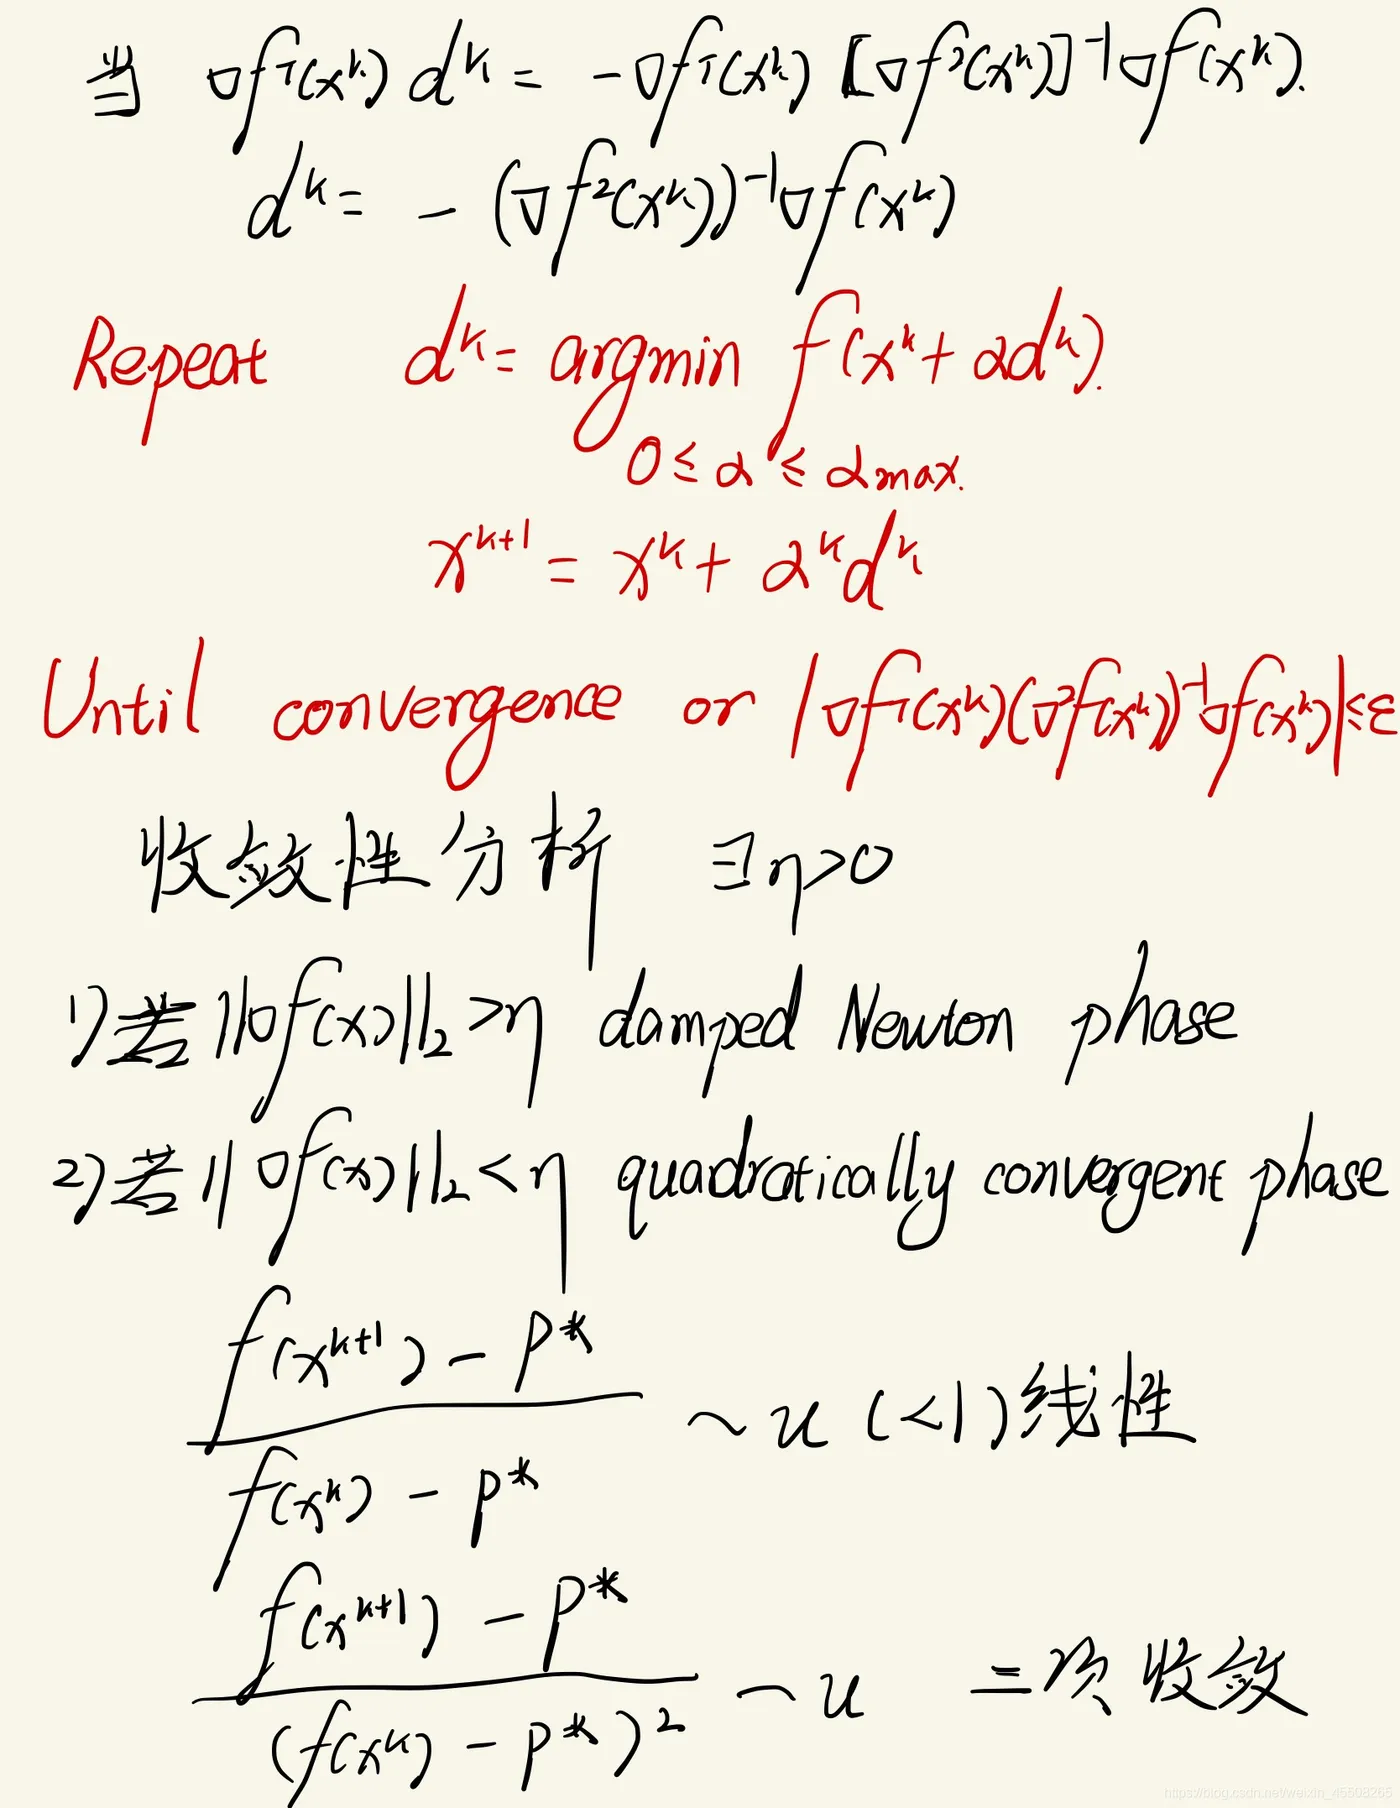 当 ∇fᵀ(xᵏ) dᵏ = -∇fᵀ(xᵏ) [∇f²(xᵏ)]⁻¹∇f(xᵏ).
dᵏ = - (∇f²(xᵏ))⁻¹∇f(xᵏ)
Repeat dᵏ = argmin f(xᵏ + αdᵏ).
0 ≤ α ≤ αmax.
xᵏ⁺¹ = xᵏ + αᵏdᵏ
Until convergence or |∇fᵀ(xᵏ)(∇²f(xᵏ))⁻¹∇f(xᵏ)| ≤ ε
收敛性分析 ∃η>0
1) 若 ||∇f(x)||₂ > η damped Newton phase
2) 若 ||∇f(x)||₂ < η quadratically convergent phase
f(xᵏ⁺¹) - p*
~ u (<1) 线性
f(xᵏ) - p*
f(xᵏ⁺¹) - p*
~ u 二次收敛
(f(xᵏ) - p*)²